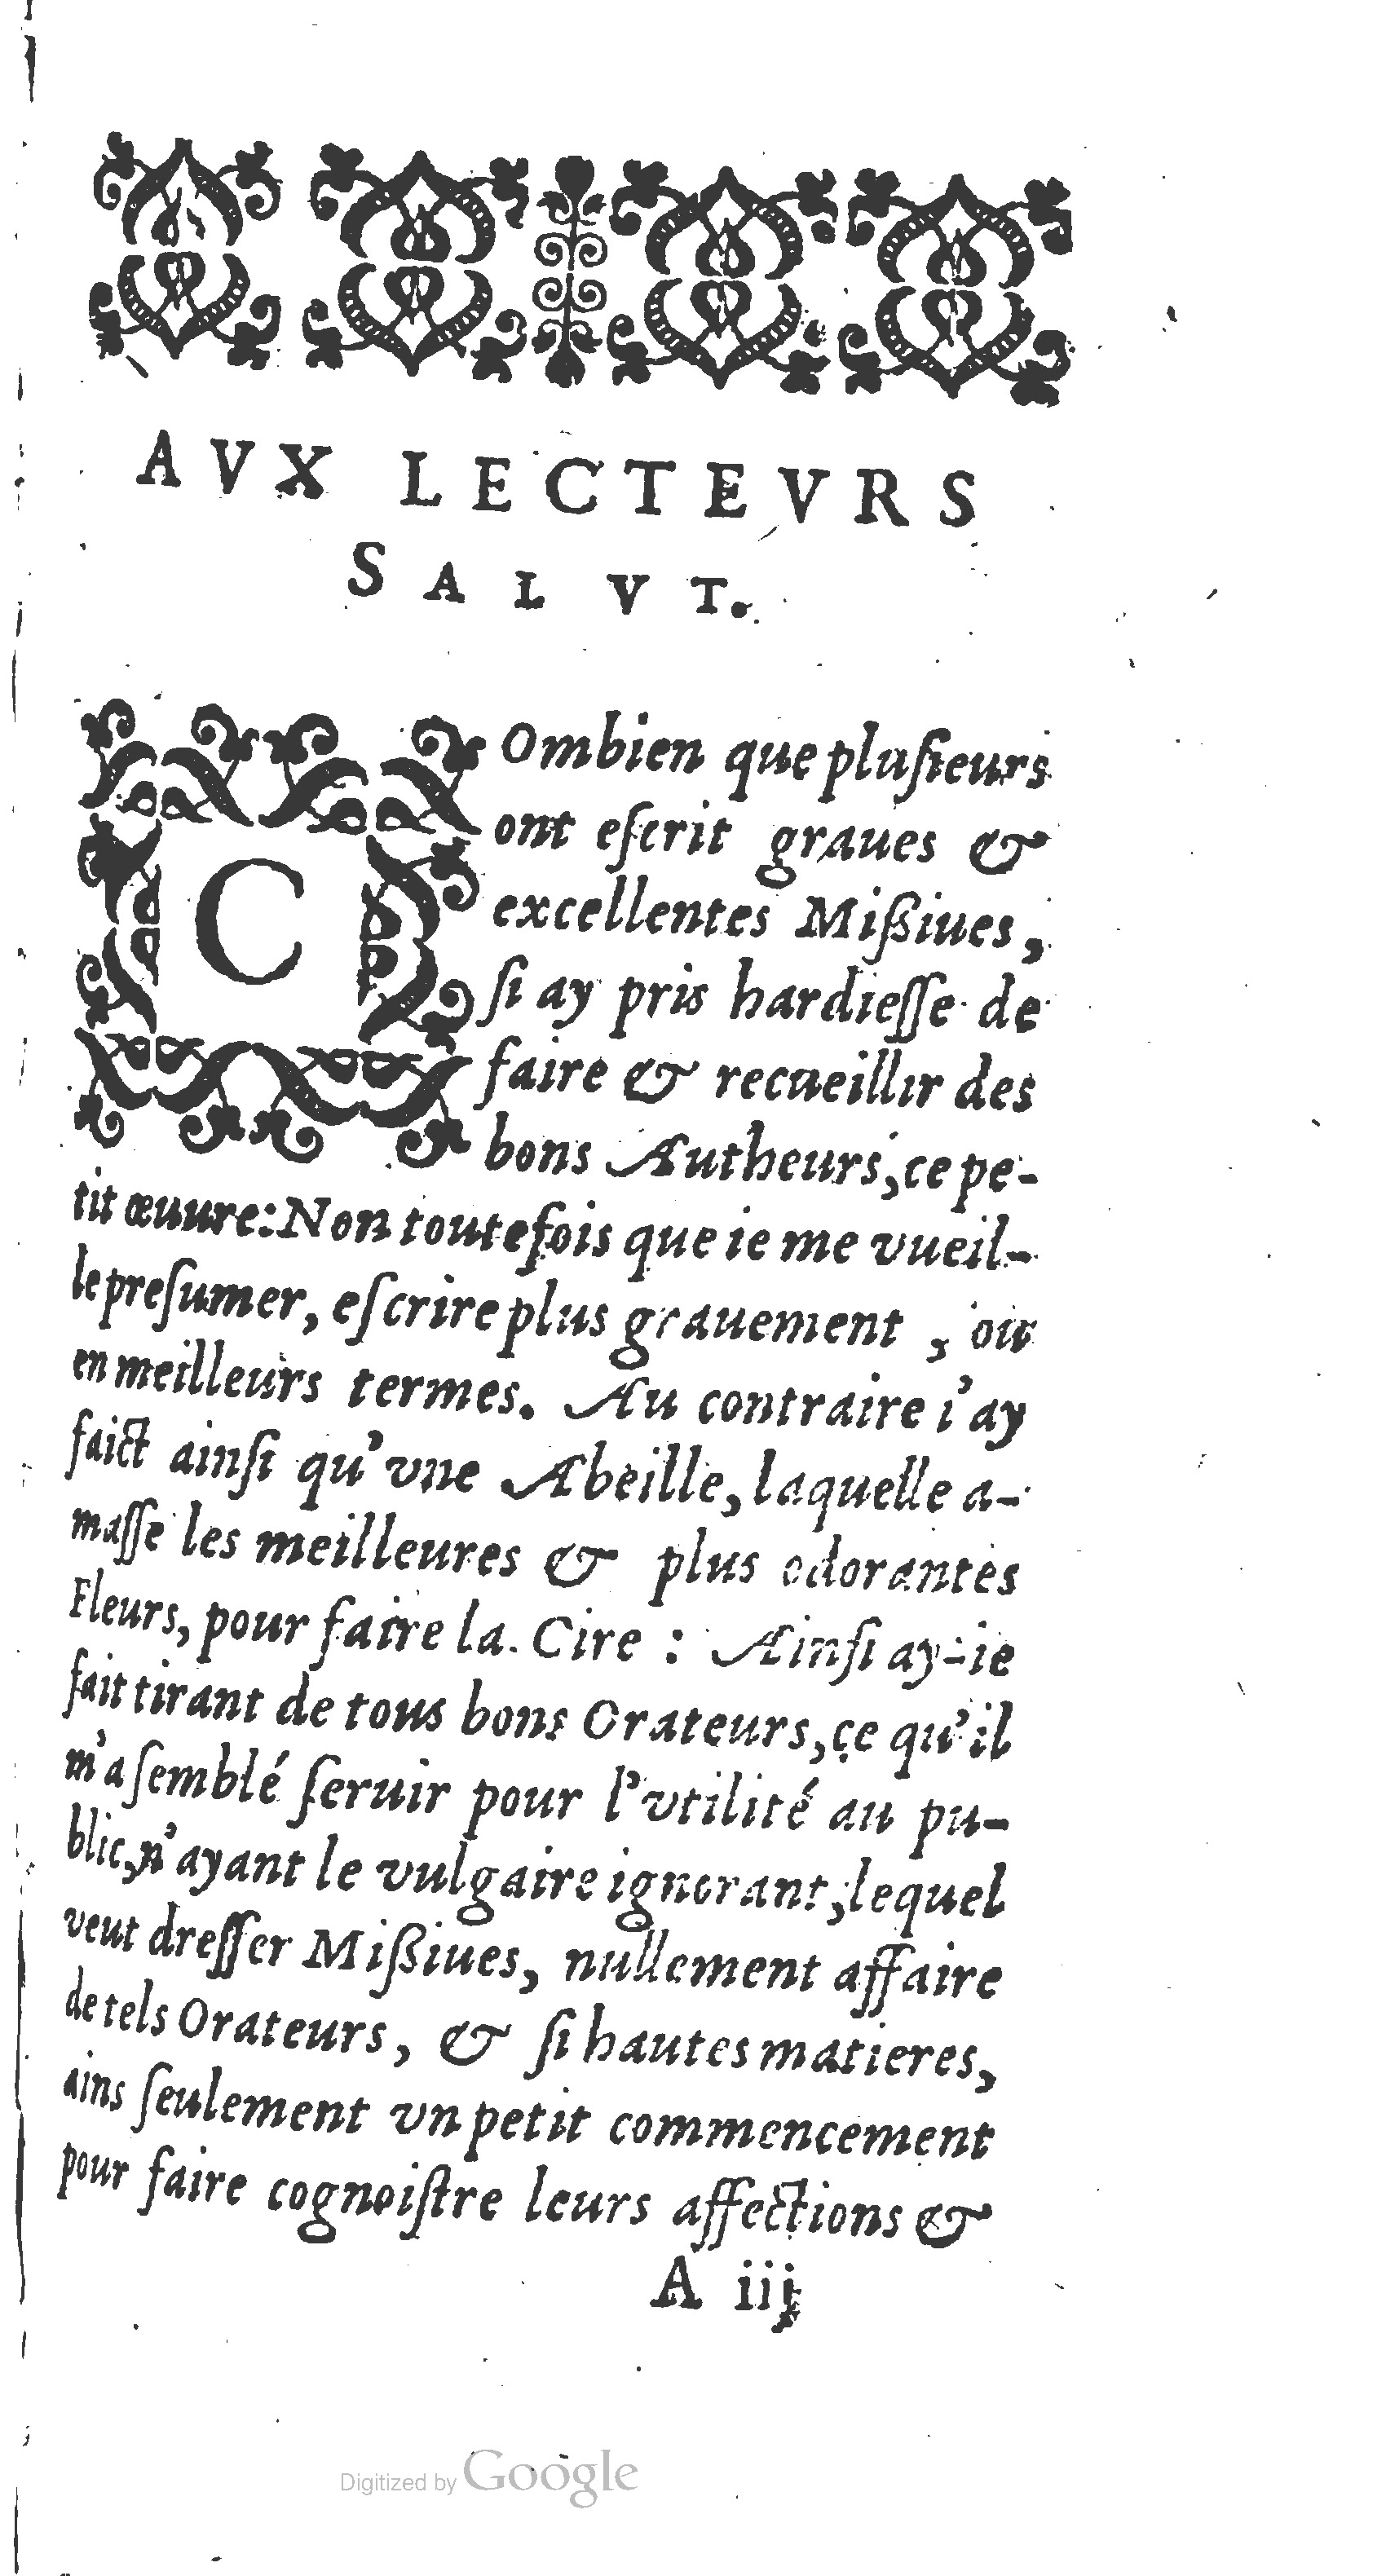 AVX LECTEVRS
SALVT.
COmbien que pluſieurs
ont eſcrit graues &
excellentes Mißiues,
ſi ay pris hardieſſe de
faire & recueillir des
bons Autheurs, ce pe-
tit œuure: Non toutefois que ie me vueil-
le preſumer, eſcrire plus grauement, ou
en meilleurs termes. Au contraire i'ay
faict ainſi qu'vne Abeille, laquelle a-
maſſe les meilleures & plus odorantes
Fleurs, pour faire la Cire : Ainſi ay-ie
fait tirant de tous bons Orateurs, ce qu'il
m'a ſemblé ſeruir pour l'vtilité au pu-
blic, n'ayant le vulgaire ignorant, lequel
veut dreſſer Mißiues, nullement affaire
de tels Orateurs, & ſi hautes matieres,
ains ſeulement vn petit commencement
pour faire cognoiſtre leurs affections &
A iij
Digitized by Google